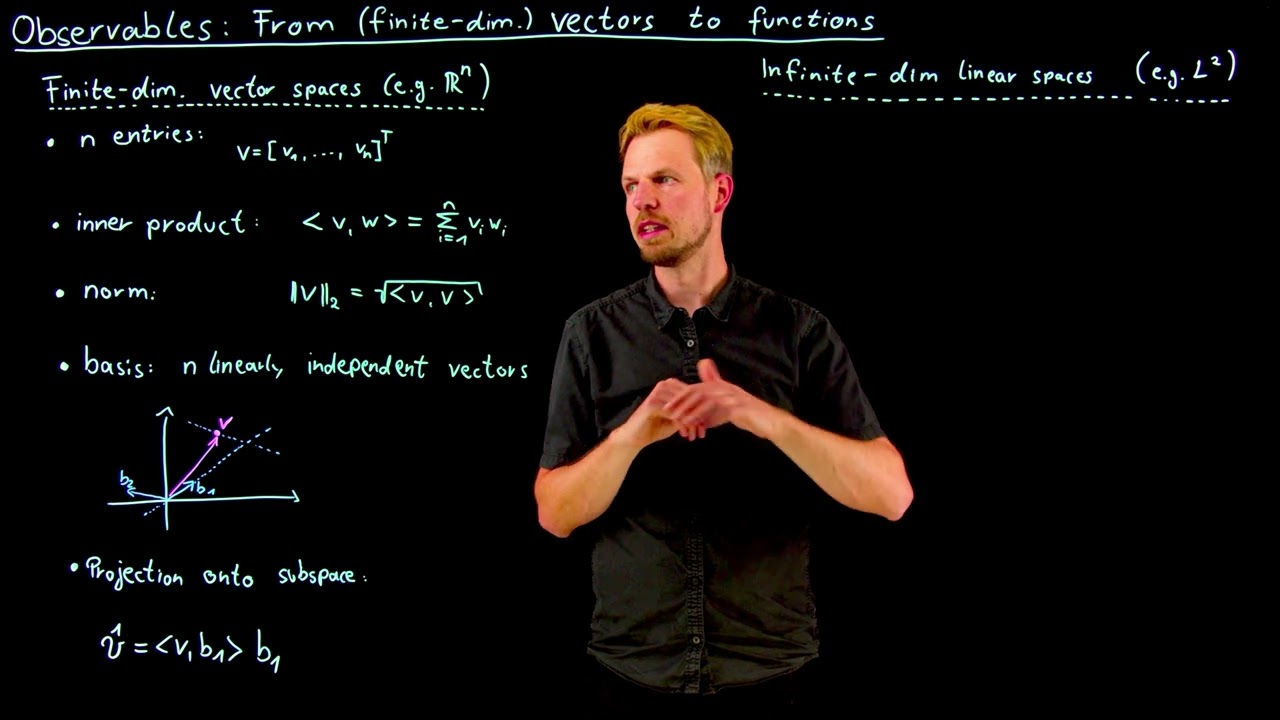 Observables: From (finite-dim.) vectors to functions
Finite-dim. vector spaces (e.g. ℝⁿ)
• n entries: v=[v₁, ..., vₙ]ᵀ
• inner product: <v, w> = ∑ⁿᵢ₌₁ vᵢ wᵢ
• norm: ‖v‖₂ = √<v, v>
• basis: n linearly independent vectors
v
b₂
b₁
• Projection onto subspace:
v̂ = <v, b₁> b₁
Infinite-dim linear spaces (e.g. L²)